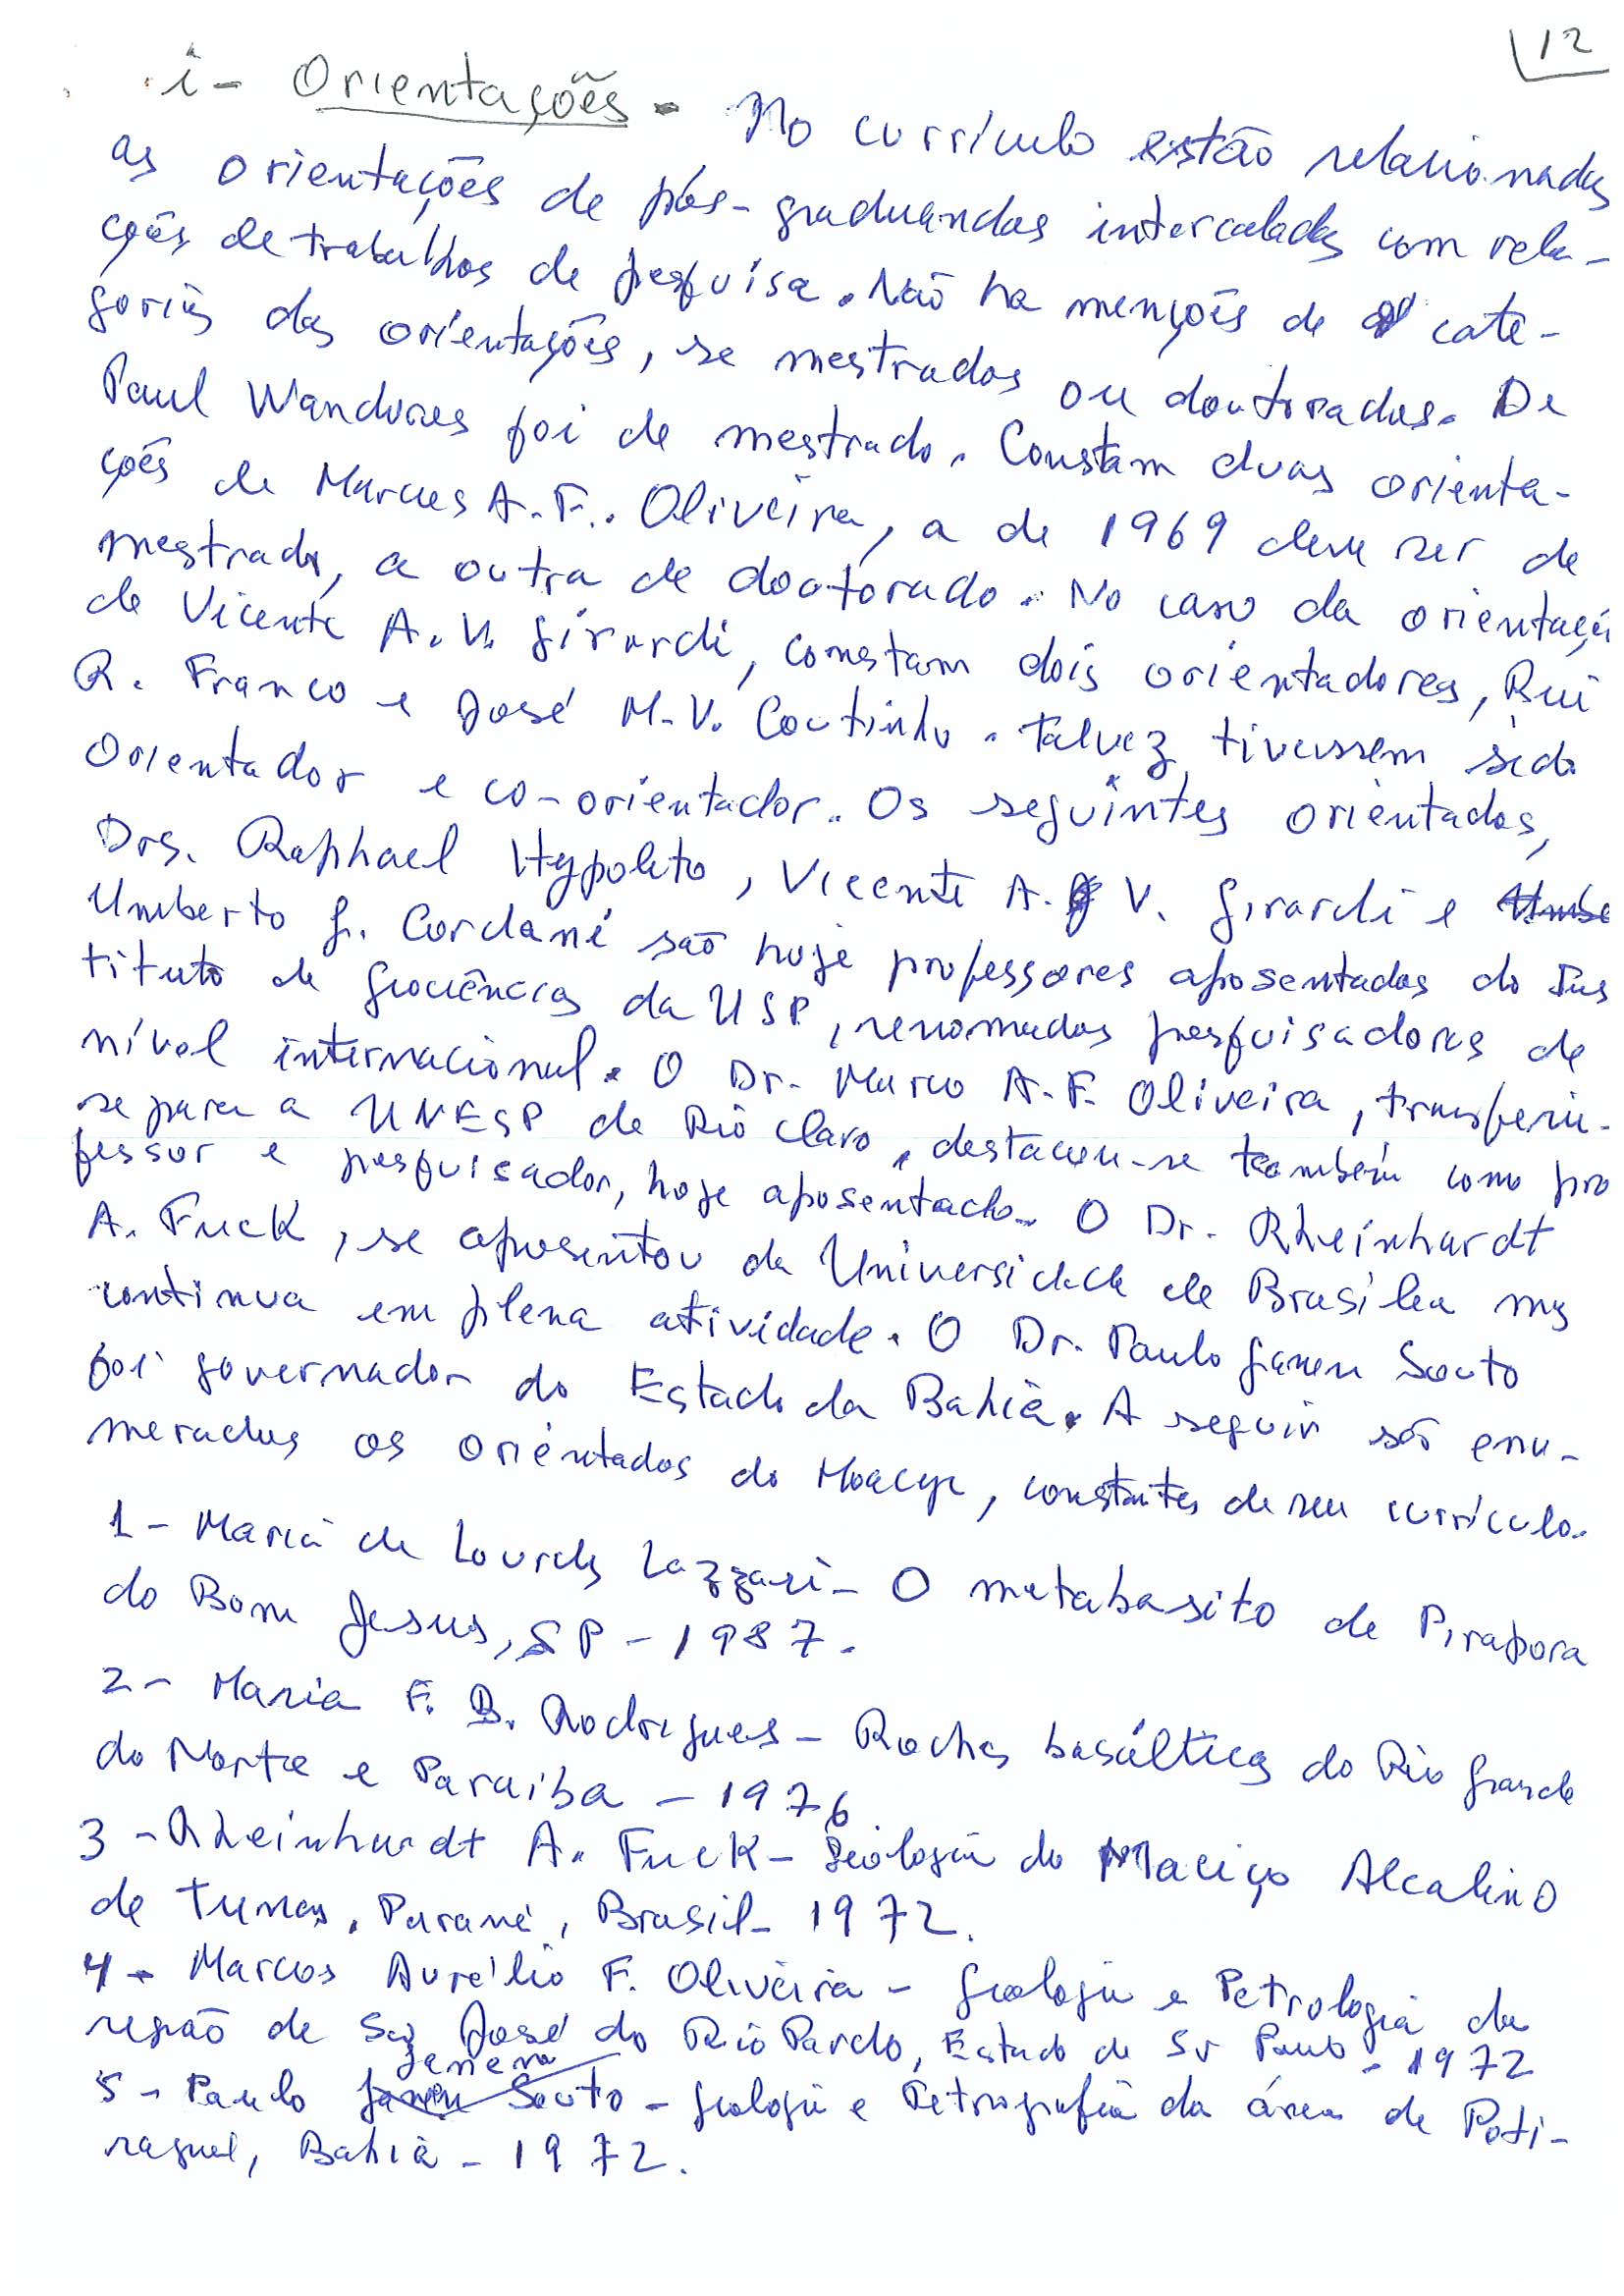 12
i - Orientações - No currículo estão relacionadas
as orientações de pós-graduandos intercaladas com rela-
ções de trabalhos de pesquisa. Não ha menções de cate-
gorias das orientações, se mestrados ou doutorados. De
Paul Wandores foi de mestrado. Constam duas orienta-
ções de Marcus A. F. Oliveira, a de 1969 deve ser de
mestrado, a outra de doutorado. No caso da orientaçã
de Vicente A. V. Girardi, constam dois orientadores, Rui
R. Franco e José M. V. Coutinho. Talvez tivessem sido
Orientador e co-orientador. Os seguintes orientados,
Drs. Raphael Hypolito, Vicente A. V. Girardi e Umbe
Umberto G. Cordani são hoje professores aposentados do Ins
tituto de Geociências da USP, renomados pesquisadores de
nível internacional. O Dr. Marco A. F. Oliveira, transferiu-
se para a UNESP de Rio Claro, destacou-se também como pro
fessor e pesquisador, hoje aposentado. O Dr. Rheinhardt
A. Fuck, se aposentou da Universidade de Brasília mas
continua em plena atividade. O Dr. Paulo Ganem Souto
foi governador do Estado da Bahia. A seguir são enu-
merados os orientados do Moacyr, constantes de seu currículo.
1 - Maria de Lourdes Lazzari - O metabasito de Pirapora
do Bom Jesus, SP - 1987.
2 - Maria F. B. Rodrigues - Rochas basálticas do Rio Grande
do Norte e Paraiba - 1976
3 - Rheinhardt A. Fuck - Geologia do Maciço Alcalino
de Tunas, Paraná, Brasil - 1972.
4 - Marcos Aurélio F. Oliveira - Geologia e Petrologia da
região de São José do Rio Pardo, Estado de São Paulo - 1972
5 - Paulo Ganem Souto - Geologia e Petrografia da área de Poti-
raguá, Bahia - 1972.